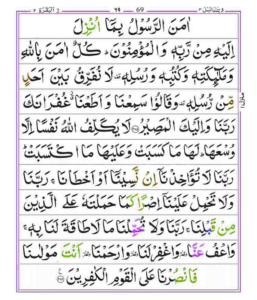 اٰمَنَ الرَّسُوْلُ بِمَاۤ اُنْزِلَ
اِلَيْهِ مِنْ رَّبِّهٖ وَ الْمُؤْمِنُوْنَ ؕ كُلٌّ اٰمَنَ بِاللّٰهِ
وَمَلٰٓئِكَتِهٖ وَكُتُبِهٖ وَرُسُلِهٖ ۟ لَا نُفَرِّقُ بَيْنَ اَحَدٍ
مِّنْ رُّسُلِهٖ ۟ وَقَالُوْا سَمِعْنَا وَ اَطَعْنَا ٘ غُفْرَانَكَ
رَبَّنَا وَاِلَيْكَ الْمَصِيْرُ لَا يُكَلِّفُ اللّٰهُ نَفْسًا اِلَّا
وُسْعَهَا ؕ لَهَا مَا كَسَبَتْ وَعَلَيْهَا مَا اكْتَسَبَتْ ؕ
رَبَّنَا لَا تُؤَاخِذْنَاۤ اِنْ نَّسِيْنَاۤ اَوْ اَخْطَاْنَا ۚ رَبَّنَا
وَلَا تَحْمِلْ عَلَيْنَاۤ اِصْرًا كَمَا حَمَلْتَهٗ عَلَى الَّذِيْنَ
مِنْ قَبْلِنَا ۚ رَبَّنَا وَلَا تُحَمِّلْنَا مَا لَا طَاقَةَ لَنَا بِهٖ ۚ
وَاعْفُ عَنَّا ٝ وَاغْفِرْ لَنَا ٝ وَارْحَمْنَا ٝ اَنْتَ مَوْلٰىنَا
فَانْصُرْنَا عَلَى الْقَوْمِ الْكٰفِرِيْنَ